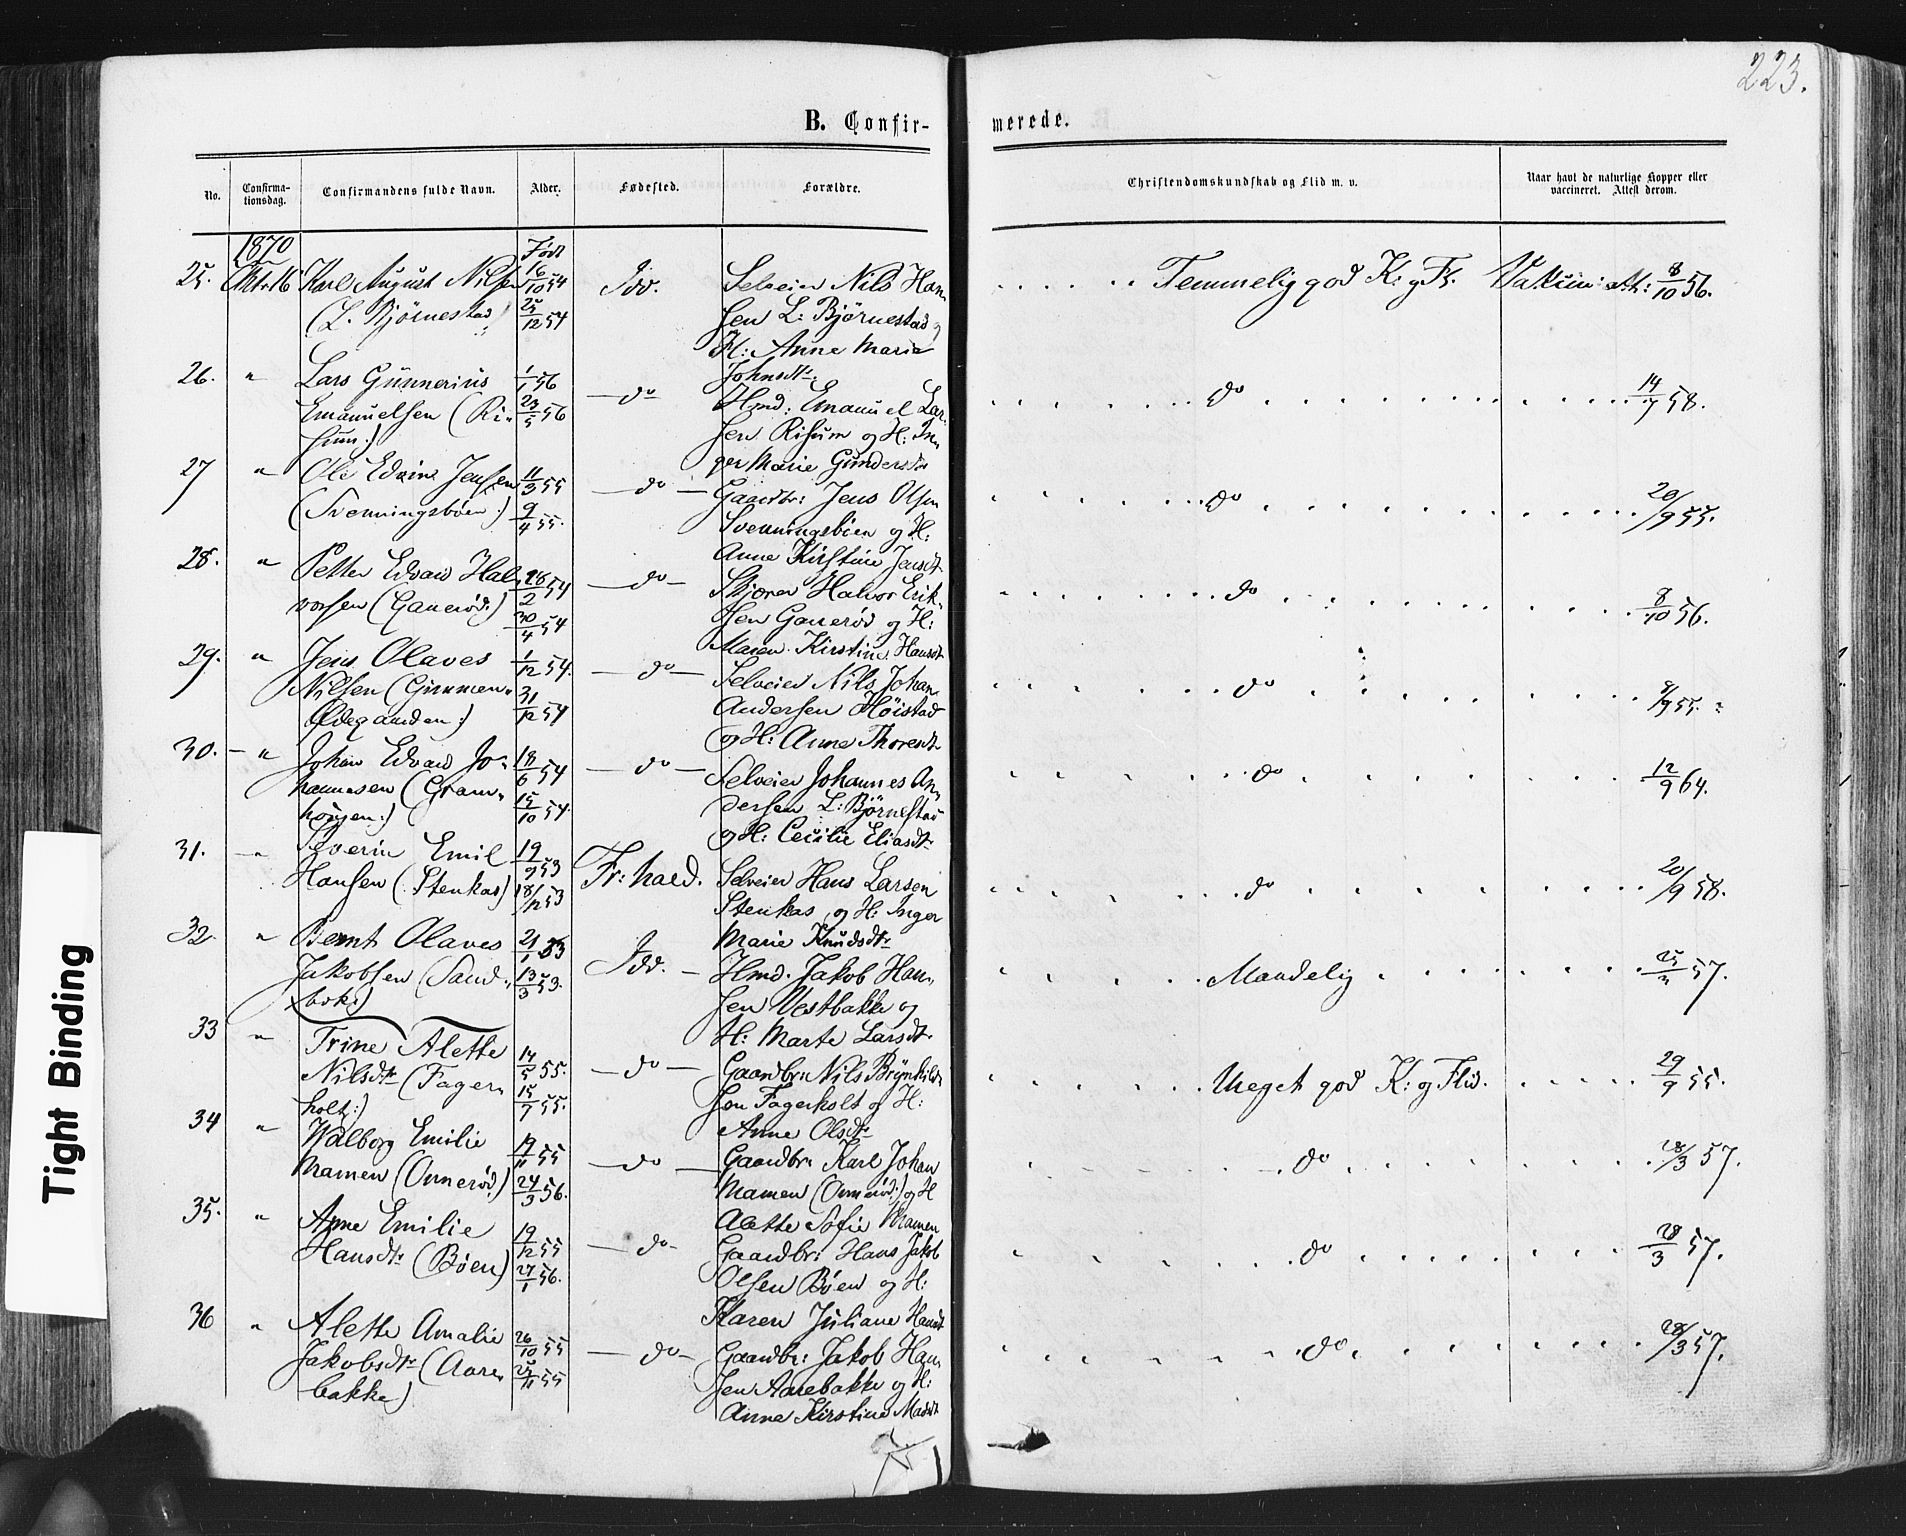 223.
B. Confir-
merede.
No.
Confirma-
tionsdag.
Confirmandens fulde Navn.
Alder.
Fødested.
Forældre.
Christendomskundskab og Flid m. v.
Naar havt de naturlige Kopper eller
vaccineret. Attest derom.
1870
Født
25. Okt. 16 Karl August Nilsen 16/10 54 Idd. Selveier Nils Han-
(L. Bjørnestad) 25/12 54 sen L: Bjørnestad og
H: Anne Marie
Johnsdtr.
Temmelig god K: og Fl. Vakcin: Att: 8/10 56.
26. " Lars Gunnerius 1/1 56 — do — Hmd: Emanuel Lar-
Emanuelsen (Ri- 23/5 56 sen Risum og H: In-
sum:) ger Marie Gundersdtr
do 14/7 58.
27 " Ole Edvin Jensen 11/3 55 — do — Gaardbr: Jens Olsen
(Svenningsbøen:) 9/4 55. Svenningsbøen og H:
Anne Kirstine Jensdtr
do 20/9 55.
28. " Petter Edvard Hal- 28/2 54 — do — Halvor Erik-
vorsen (Ganerød:) 30/4 54 sen Ganerød og H:
Maren Kirstine Hansdtr
do 8/10 56.
29. " Jens Olaves 1/12 54. — do — Selveier Nils Johan
Nilsen (Gimmen- 31/12 54 Andersen Høistad
Ødegaarden:) og H: Anne Thoresdtr
do 8/9 55.
30. — " Johan Edvard Jo- 18/6 54 — do — Selveier Johannes An-
hannesen (Gram- 15/10 54. dersen L: Bjørnestad
haugen:) og H: Cecilie Eliasdtr
do 12/9 64.
31. — " Severin Emil 19/9 53 Fr: hald. Selveier Hans Larsen
Hansen (Stenkas) 18/12 53 Stenkas og H: Inger
Marie Knudsdtr
do 20/9 58.
32. " Bernt Olaves 21/1 53 Idd. — Hmd. Jakob Han-
Jakobsen (Sand- 13/3 53. sen Vestbakke og
bæk:) H: Marte Larsdtr
Maadelig 25/3 57.
33 " Trine Alette 14/5 55. — do — Gaardbr: Nils Brynhild-
Nilsdtr (Fager- 15/7 55. sen Fagerholt og H:
holt:) Anne Olsdtr
Meget god K: og Flid. 29/9 55.
34 " Walborg Emilie 19/11 55 — do — Gaardbr: Karl Johan
Mamen (Ønnerød:) 24/3 56. Mamen (Ønnerød:) og H
Alette Sofie Mamen
do 28/3 57.
35. " Anne Emilie 19/12 55 — do — Gaardbr: Hans Jakob
Hansdtr (Bøen) 27/1 56. Olsen Bøen og H:
Karen Juliane Hansdtr
do 28/3 57.
36 " Alette Amalie 26/10 55 — do — Gaardbr: Jakob Han-
Jakobsdtr (Aare- 25/11 55 sen Aarebakke og H:
bakke) Anne Kirstine Madsdtr
do 28/3 57.
Tight Binding